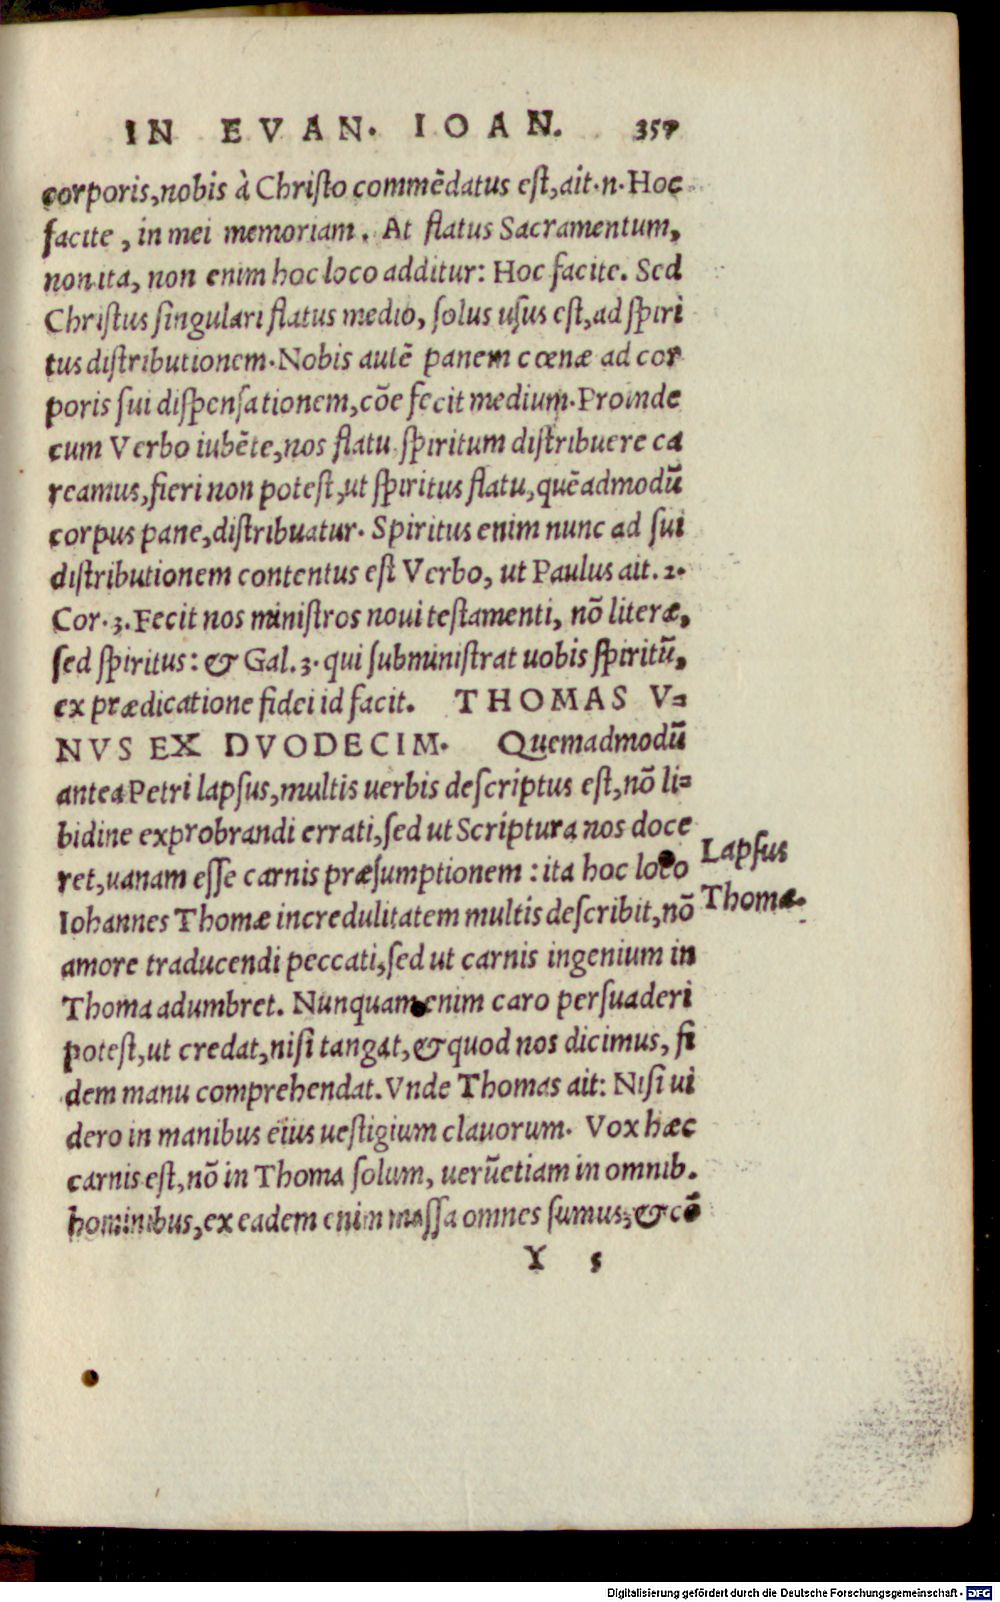 IN EVAN. IOAN. 357
corporis, nobis à Christo commẽdatus est, ait.n. Hoc
facite, in mei memoriam. At flatus Sacramentum,
non ita, non enim hoc loco additur: Hoc facite. Sed
Christus singulari flatus medio, solus usus est, ad spiri
tus distributionem. Nobis autẽ panem cœnæ ad cor
poris sui dispensationem, cõe fecit medium. Proinde
cum Verbo iubẽte, nos flatu spiritum distribuere ca
reamus, fieri non potest, ut spiritus flatu, quẽadmodũ
corpus pane, distribuatur. Spiritus enim nunc ad sui
distributionem contentus est Verbo, ut Paulus ait. 2.
Cor. 3. Fecit nos ministros noui testamenti, nõ literæ,
sed spiritus: & Gal. 3. qui subministrat uobis spiritũ,
ex prædicatione fidei id facit. THOMAS V=
NVS EX DVODECIM. Quemadmodũ
antea Petri lapsus, multis uerbis descriptus est, nõ li=
bidine exprobrandi errati, sed ut Scriptura nos doce
ret, uanam esse carnis præsumptionem: ita hoc loco
Iohannes Thomæ incredulitatem multis describit, nõ
amore traducendi peccati, sed ut carnis ingenium in
Thoma adumbret. Nunquam enim caro persuaderi
potest, ut credat, nisi tangat, & quod nos dicimus, fi
dem manu comprehendat. Vnde Thomas ait: Nisi ui
dero in manibus eius uestigium clauorum. Vox hæc
carnis est, nõ in Thoma solum, uerũetiam in omnib.
hominibus, ex eadem enim massa omnes sumus, & cõ
Y 5
Lapsus
Thomæ.
Digitalisierung gefördert durch die Deutsche Forschungsgemeinschaft - DFG